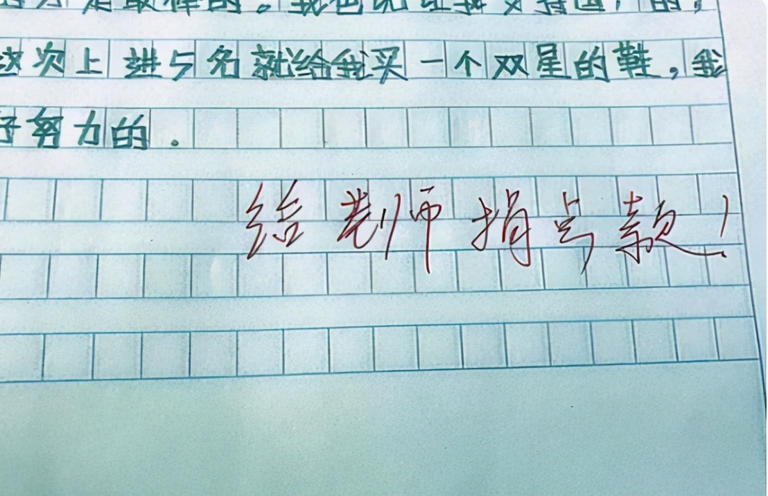 是最棒的。我也
这次上进5名就给我买一个双星的鞋，我
努力的。
给老师捐点款！